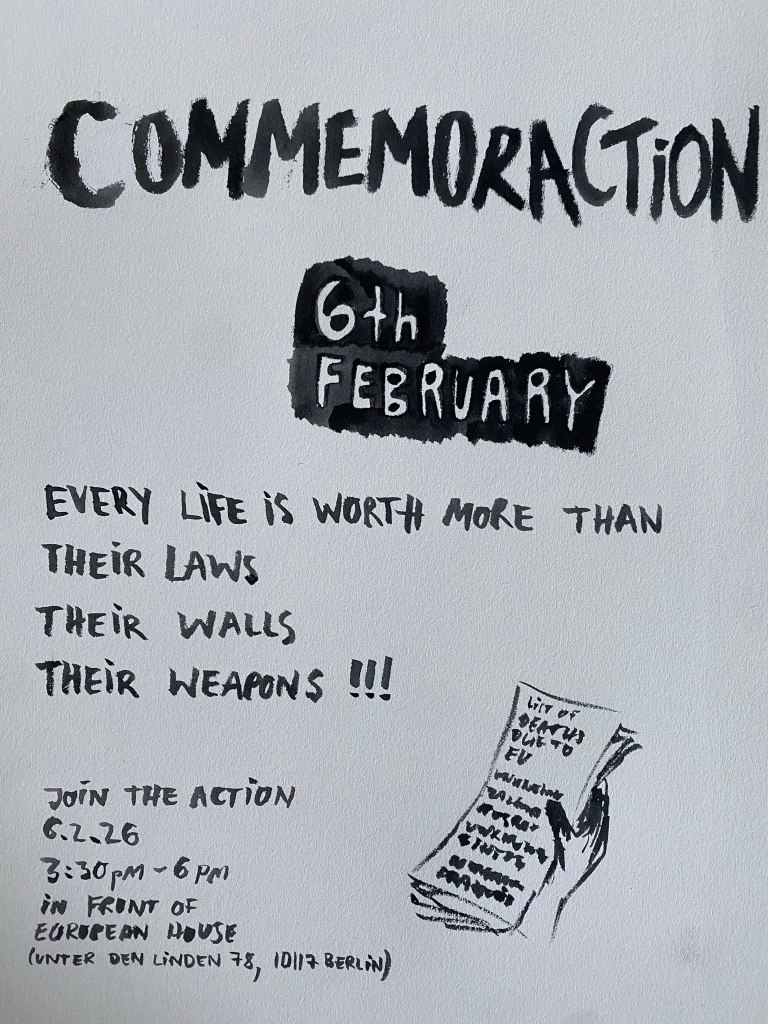 COMMEMORACTION
6th
FEBRUARY
EVERY LiFE iS WORTH MORE THAN
THEiR LAWS
THEiR WALLS
THEiR WEAPONS !!!
JOiN THE ACTION
6.2.26
3:30PM - 6PM
iN FRONT OF
EUROPEAN HOUSE
(UNTER DEN LiNDEN 78, 10117 BERLiN)
LiST OF
DEATHS
DUE TO
EU